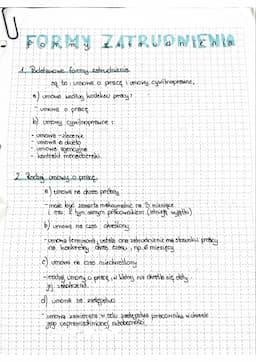 FORMY ZATRUDNIENIA
1. Podstawowe formy zatrudnienia
są to: umowa o pracę i umowy cywilnoprawne,
a) umowa według kodeksu pracy:
- umowa o pracę
b) umowy cywilnoprawne:
- umowa-zlecenie
- umowa o dzieło
- umowa agencyjna
- kontrakt menedżerski
2. Rodzaj umowy o pracę
a) umowa na okres próbny
- może być zawarta maksymalnie na 3 miesiące
z tym samym pracownikiem (istnieją wyjątki)
b) umowa na czas określony
- umowa terminowa, ustala ona zatrudnienie na
na konkretny okres czasu, np. 6 miesięcy
c) umowa na czas nieokreślony
- rodzaj umowy o pracę, w której nie określa się daty
jej zakończenia.
d) umowa na zastępstwo
- umowa zawierana w celu zastępstwa pracownika w okresie
jego usprawiedliwionej nieobecności.